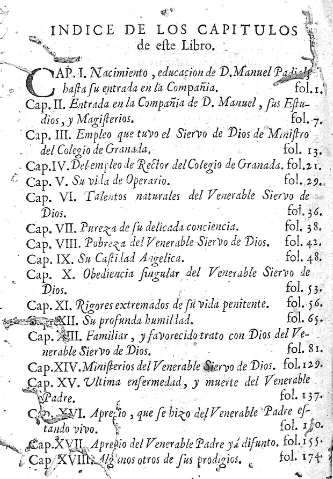 INDICE DE LOS CAPITULOS
de este Libro.
CAP. I. Nacimiento, educacion de D. Manuel Padial
hasta su entrada en la Compañia. fol. 1.
Cap. II. Entrada en la Compañia de D. Manuel, sus Estu-
dios, y Magisterios. fol. 7.
Cap. III. Empleo que tuvo el Siervo de Dios de Ministro
del Colegio de Granada. fol. 13.
Cap. IV. Del empleo de Rector del Colegio de Granada. fol. 21.
Cap. V. Su vida de Operario. fol. 29.
Cap. VI. Talentos naturales del Venerable Siervo de
Dios. fol. 36.
Cap. VII. Pureza de su delicada conciencia. fol. 38.
Cap. VIII. Pobreza del Venerable Siervo de Dios. fol. 42.
Cap. IX. Su Castidad Angelica. fol. 48.
Cap. X. Obediencia singular del Venerable Siervo de
Dios. fol. 53.
Cap. XI. Rigores extremados de su vida penitente. fol. 56.
XII. Su profunda humildad. fol. 65.
Cap. XIII. Familiar, y favorecido trato con Dios del Ve-
nerable Siervo de Dios. fol. 81.
Cap. XIV. Ministerios del Venerable Siervo de Dios. fol. 129.
Cap. XV. Ultima enfermedad, y muerte del Venerable
Padre. fol. 137.
Cap. XVI. Aprecio, que se hizo del Venerable Padre es-
tando vivo. fol. 150.
Cap. XVII. Aprecio del Venerable Padre yá difunto. fol. 155.
Cap. XVIII. Algunos otros de sus prodigios. fol. 174.